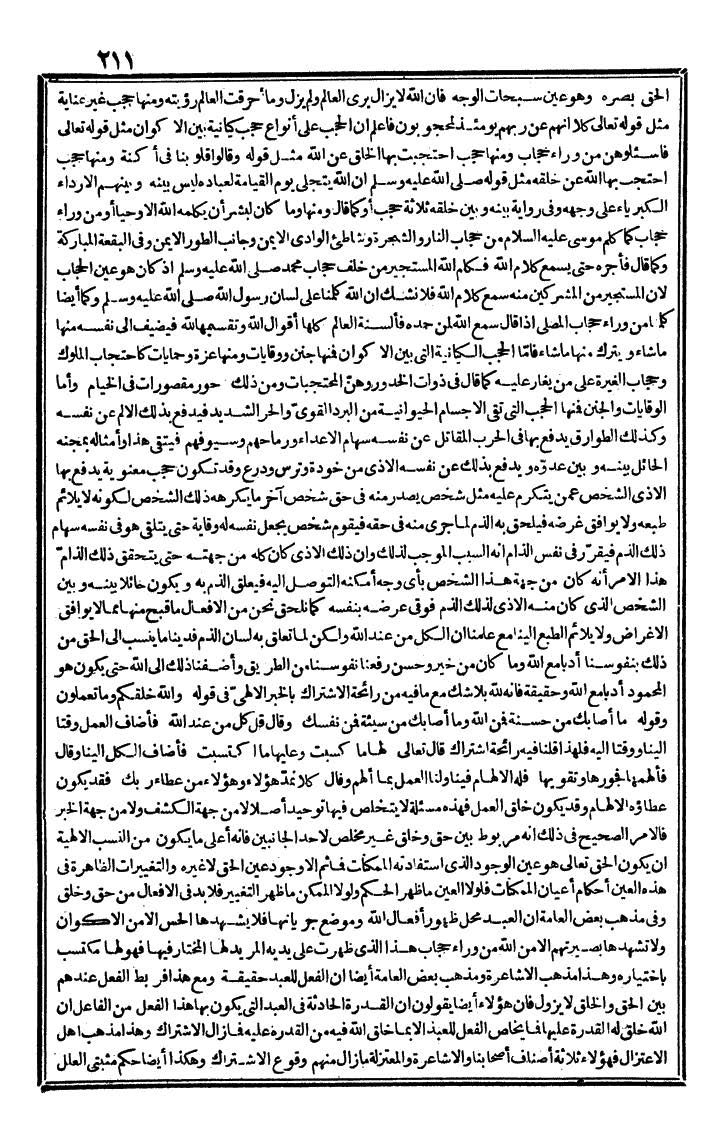 ٢١١
الحق بصره وهو عين سبحات الوجه فان الله لا يزال يرى العالم ولم يزل وما أحرقت العالم رؤيته ومنها حجب غير عناية
مثل قوله تعالى كلا انهم عن ربهم يومئذ لمحجوبون فاعلم ان الحجب على أنواع حجب كيانية بين الاكوان مثل قوله تعالى
فاسئلوهن من وراء حجاب ومنها حجب احتجبت بها الخلق عن الله مثل قوله وقالوا قلوبنا فى أكنة ومنها حجب
احتجب بها الله عن خلقه مثل قوله صلى الله عليه وسلم ان الله يتجلى يوم القيامة لعباده ليس بينه وبينهم الارداء
الكبرياء على وجهه وفى رواية بينه وبين خلقه ثلاثة حجب أو كما قال ومنها وما كان لبشر أن يكلمه الله الا وحيا أو من وراء
حجاب كما كلم موسى عليه السلام من حجاب النار والشجرة وشاطئ الوادى الايمن وجانب الطور الايمن وفى البقعة المباركة
وكما قال فأجره حتى يسمع كلام الله فكلم الله المستجير من خلف حجاب محمد صلى الله عليه وسلم اذ كان هو عين الحجاب
لان المستجير من المشركين منه سمع كلام الله فلا نشك ان الله كلمنا على لسان رسول الله صلى الله عليه وسلم وكما أيضا
كلمنا من وراء حجاب المصلى اذا قال سمع الله لمن حمده فألسنة العالم كلها أقوال الله وتقسيمها لله فيضيف الى نفسه منها
ما شاء ويترك منها ما شاء فامّا الحجب الكيانية التى بين الاكوان فمنها جنن ووقايات ومنها عزة وحمايات كاحتجاب الملوك
وحجاب الغيرة على من يغار عليه كما قال فى ذوات الخدور وهنّ المحتجبات ومن ذلك حور مقصورات فى الخيام وأما
الوقايات والجنن فمنها الحجب التى تقى الاجسام الحيوانية من البرد القوىّ والحر الشديد فيدفع بذلك الالم عن نفسه
وكذلك الطوارق يدفع بها فى الحرب المقاتل عن نفسه سهام الاعداء ورماحهم وسيوفهم فيتقى هذا وأمثاله بمجنه
الحائل بينه وبين عدوّه ويدفع بذلك عن نفسه الاذى من خودة وترس ودرع وقد تكون حجب معنوية يدفع بها
الاذى الشخص عمن يتكرم عليه مثل شخص يصدر منه فى حق شخص آخر ما يكرهه ذلك الشخص لكونه لا يلائم
طبعه ولا يوافق غرضه فيلحق به الذم لما جرى منه فى حقه فيقوم شخص يجعل نفسه له وقاية حتى يتلقى هو فى نفسه سهام
ذلك الذم فيقرّر فى نفس الذام انه السبب الموجب لذلك وان ذلك الاذى كان كله من جهته حتى يتحقق ذلك الذامّ
هذا الامر أنه كان من جهة هذا الشخص بأى وجه أمكنه التوصل اليه فيعلق الذم به ويكون حائلا بينه وبين
الشخص الذى كان منه الاذى لذلك الذم فوقى عرضه بنفسه كما نلحق نحن من الافعال ما قبح منها مما لا يوافق
الاغراض ولا يلائم الطبع الينا مع علمنا ان الكل من عند الله ولكن لما تعلق به لسان الذم فدينا ما ينسب الى الحق من
ذلك بنفوسنا أدبا مع الله وما كان من خير وحسن رفعنا نفوسنا من الطريق وأضفنا ذلك الى الله حتى يكون هو
المحمود أدبا مع الله وحقيقة فانه لله بلا شك مع ما فيه من رائحة الاشتراك بالخبر الالهىّ فى قوله والله خلقكم وما تعملون
وقوله ما أصابك من حسنة فمن الله وما أصابك من سيئة فمن نفسك وقال قل كل من عند الله فأضاف العمل وقتا
الينا ووقتا اليه فلهذا قلنا فيه رائحة اشتراك قال تعالى لها ما كسبت وعليها ما اكتسبت فأضاف الكل الينا وقال
فألهمها فجورها وتقويها فله الالهام فينا ولنا العمل بما ألهم وقال كلا نمدّ هؤلاء وهؤلاء من عطاء ربك فقد يكون
عطاؤه الالهام وقد يكون خلق العمل فهذه مسئلة لا يتخلص فيها توحيد أصلا لا من جهة الكشف ولا من جهة الخبر
فالامر الصحيح فى ذلك انه مربوط بين حق وخلق غير مخلص لاحد الجانبين فانه أعلى ما يكون من النسب الالهية
ان يكون الحق تعالى هو عين الوجود الذى استفادته الممكنات فما ثم الا وجود عين الحق لا غيره والتغييرات الظاهرة فى
هذه العين أحكام أعيان الممكنات فلولا العين ما ظهر الحكم ولولا الممكن ما ظهر التغيير فلا بد فى الافعال من حق وخلق
وفى مذهب بعض العامة ان العبد محل ظهور أفعال الله وموضع جريانها فلا يشهدها الحس الا من الاكوان
ولا تشهدها بصيرتهم الا من الله من وراء حجاب هذا الذى ظهرت على يديه المريد لها المختار فيها فهو لها مكتسب
باختياره وهذا مذهب الاشاعرة ومذهب بعض العامة أيضا ان الفعل للعبد حقيقة ومع هذا فربط الفعل عندهم
بين الحق والخلق لا يزول فان هؤلاء أيضا يقولون ان القدرة الحادثة فى العبد التى يكون بها هذا الفعل من الفاعل ان
الله خلق له القدرة عليها فما يخلص الفعل للعبد الا بما خلق الله فيه من القدرة عليه فما زال الاشتراك وهذا مذهب اهل
الاعتزال فهؤلاء ثلاثة أصناف أصحابنا والاشاعرة والمعتزلة ما زال منهم وقوع الاشتراك وهكذا أيضا حكم مثبتى العلل